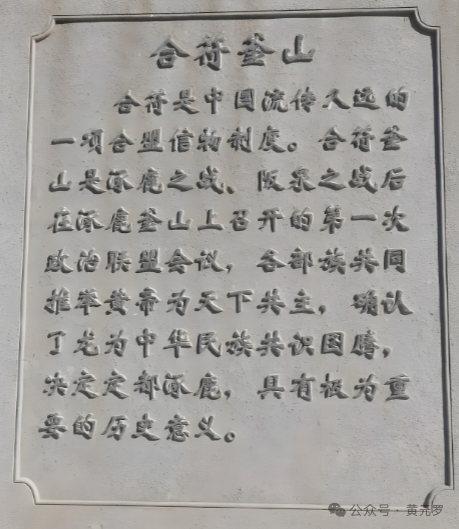 合符釜山
合符是中国流传久远的
一项合盟信物制度。合符釜
山是涿鹿之战、阪泉之战后
在涿鹿釜山上召开的第一次
政治联盟会议，各部族共同
推举黄帝为天下共主，确认
了龙为中华民族共识图腾，
决定定都涿鹿，具有极为重
要的历史意义。
公众号·黄尧罗